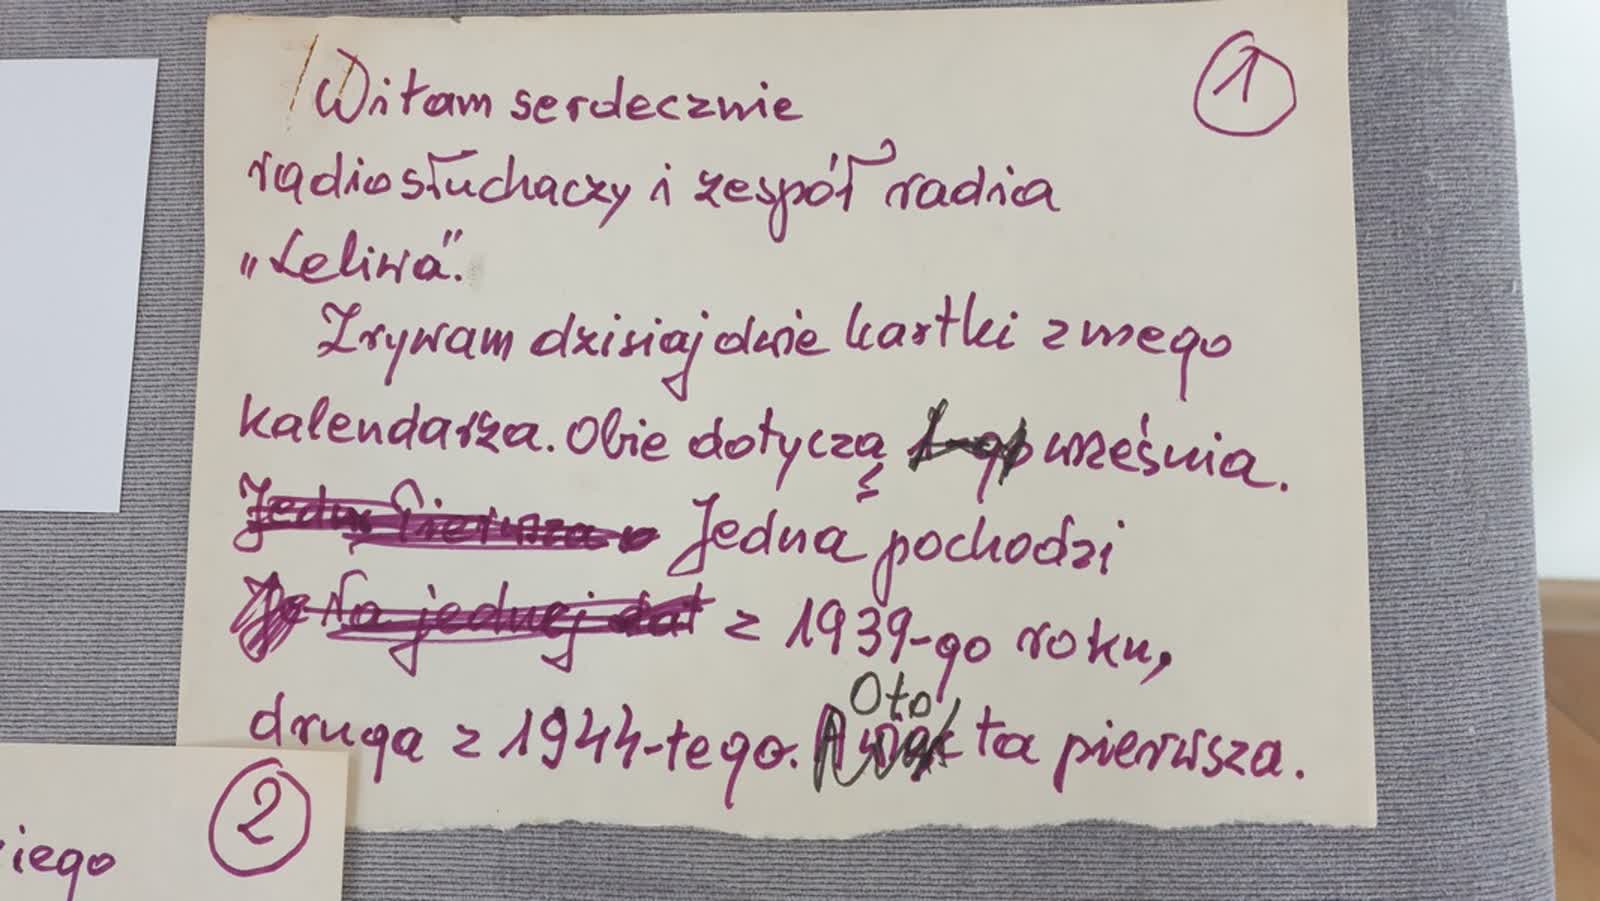 1
Witam serdecznie
radiosłuchaczy i zespół radia
„Leliwa".
Zrywam dzisiaj dwie kartki z mego
kalendarza. Obie dotyczą września.
Jedna pochodzi
z 1939-go roku,
Oto
druga z 1944-tego. ta pierwsza.
2
iego